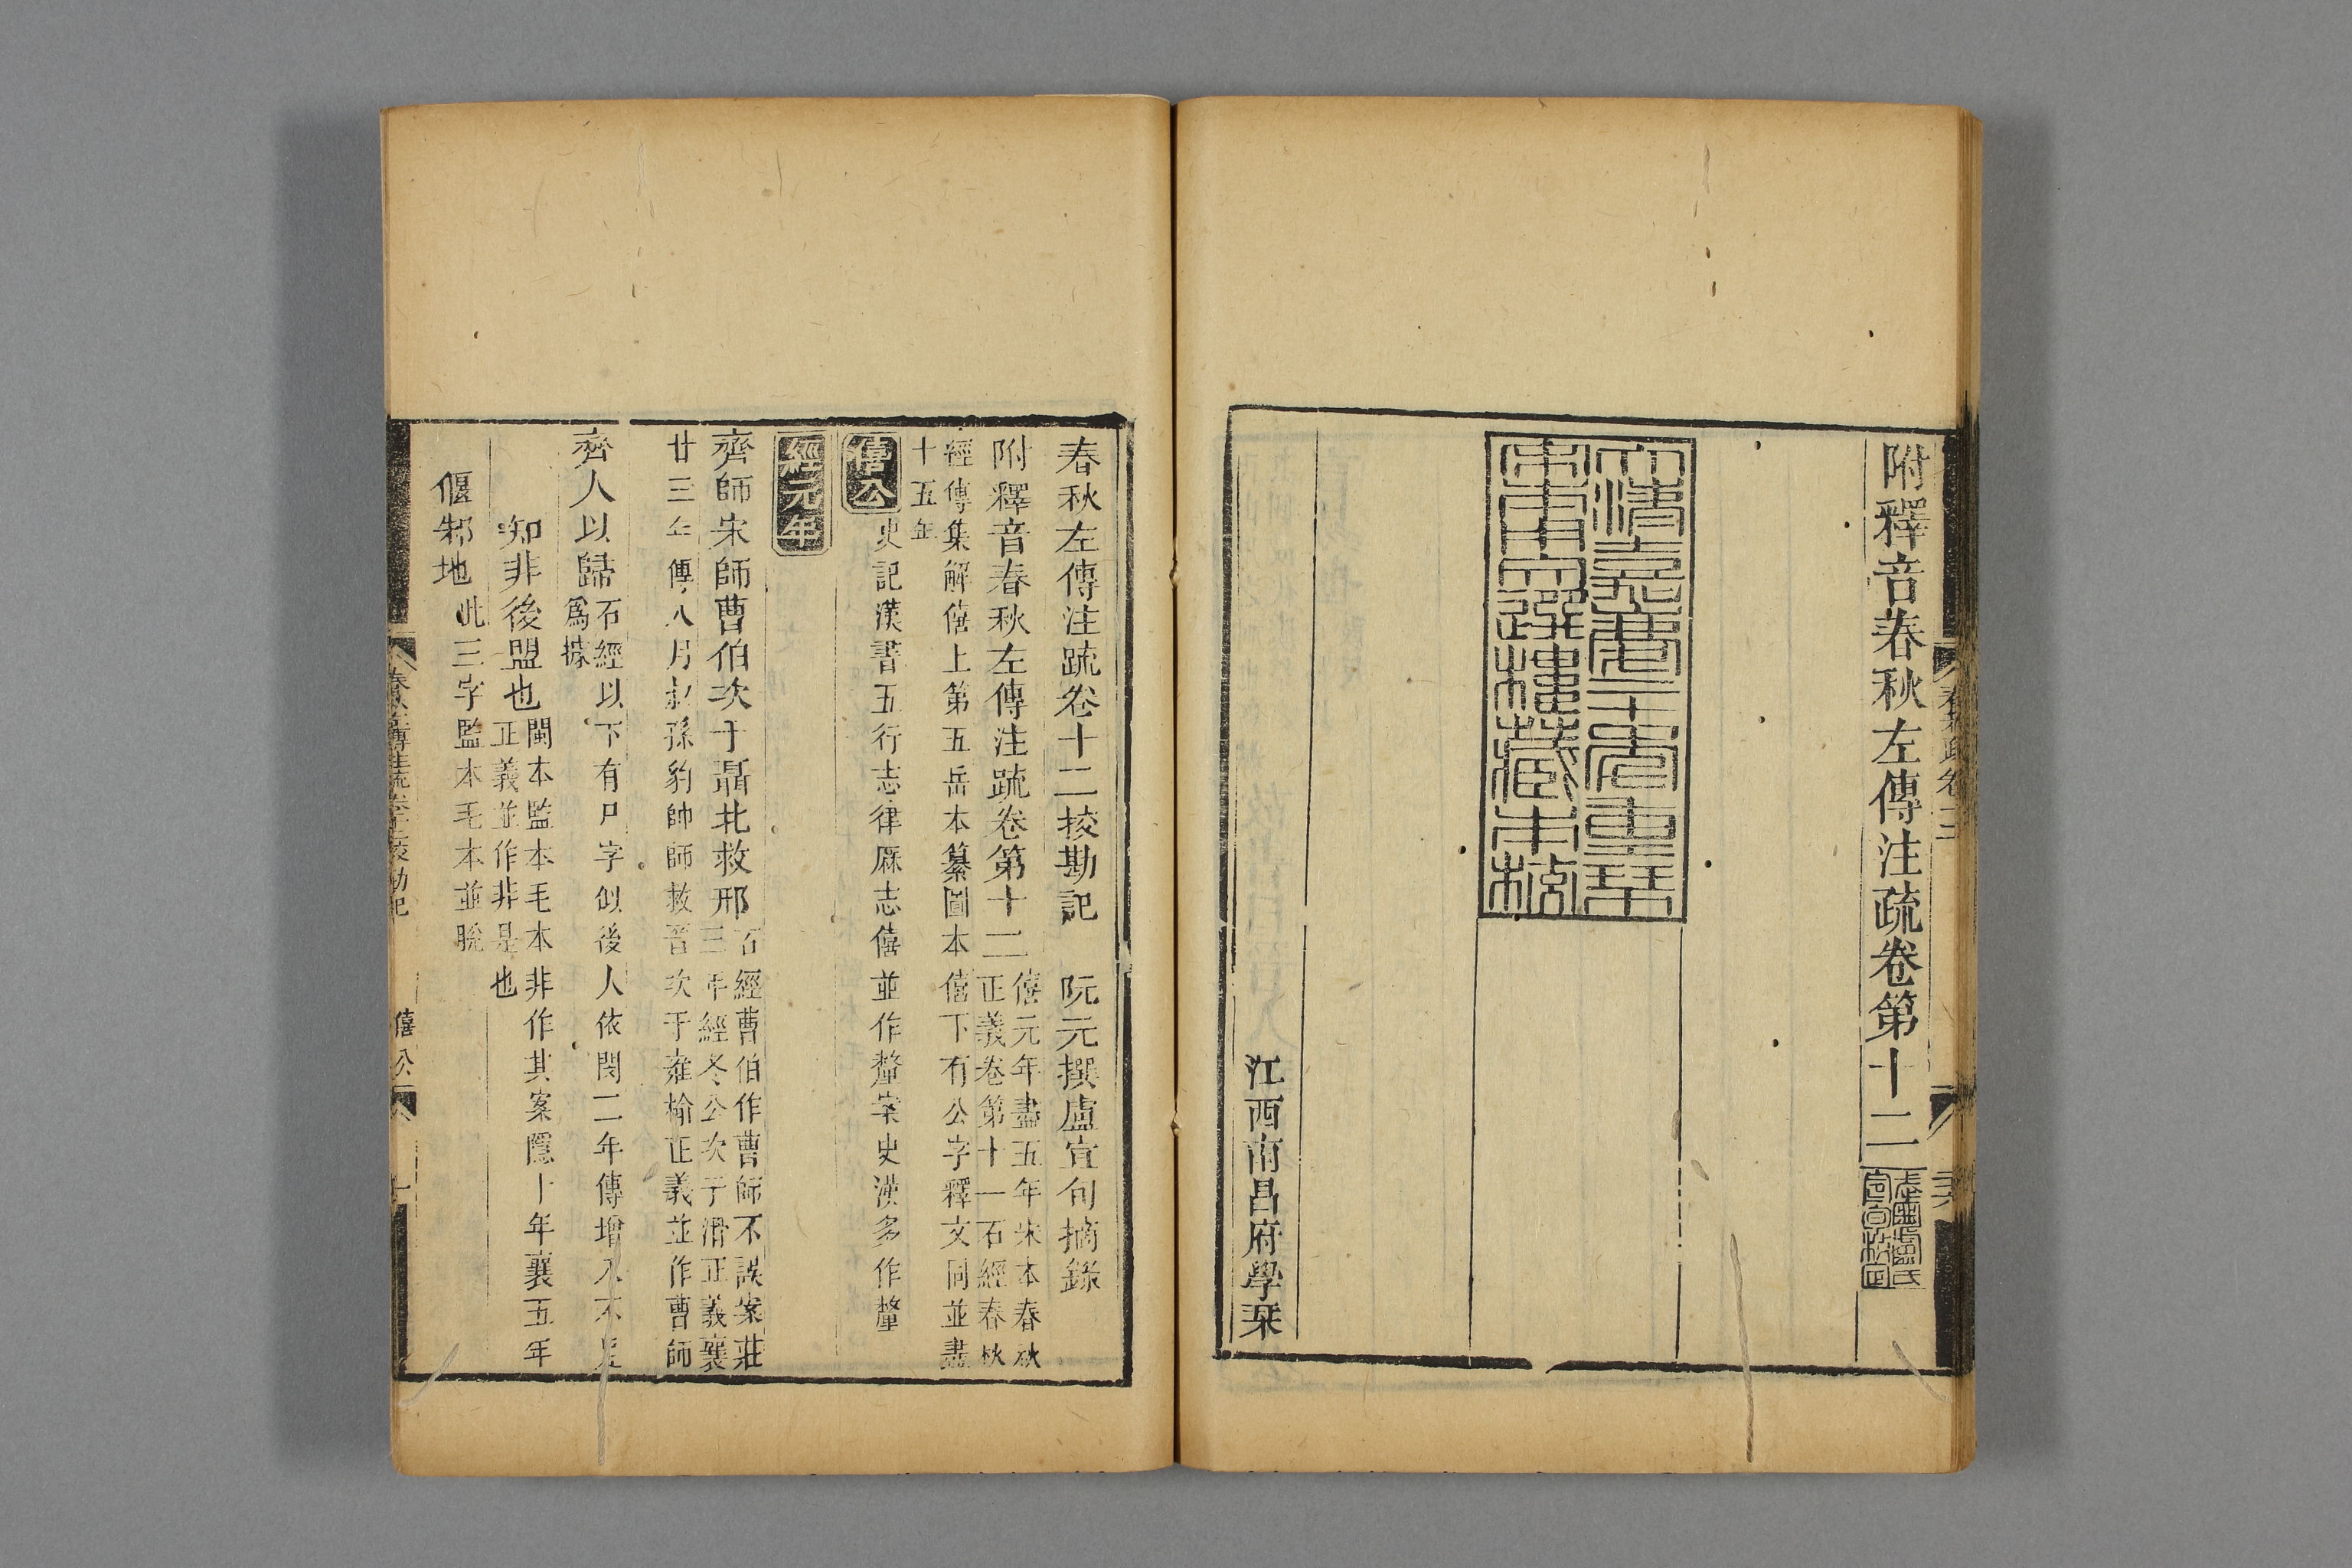 附釋音春秋左傳注疏卷第十二
大清嘉慶二十年重栞
宋本用文選樓藏本挍
江西南昌府學栞
春秋左傳注疏卷十二挍勘記　阮元撰盧宣旬摘錄
附釋音春秋左傳注疏卷第十二
僖元年盡五年宋本春秋
正義卷第十一石經春秋
經傳集解僖上第五岳本纂圖本僖下有公字釋文同並盡
十五年
僖公
史記漢書五行志律厤志僖並作釐案史漢多作釐
經元年
齊師宋師曹伯次于聶北救邢
石經曹伯作曹師不誤案莊
三年經冬公次于滑正義襄
廿三年傳八月叔孫豹帥師救晉次于雍榆正義並作曹師
齊人以歸
石經以下有尸字似後人依閔二年傳增入不足
爲據
知非後盟也
閩本監本毛本非作其案隱十年襄五年
正義並作非是也
偃邾地
此三字監本毛本並脫
春秋左傳注疏卷十二校勘記　僖公